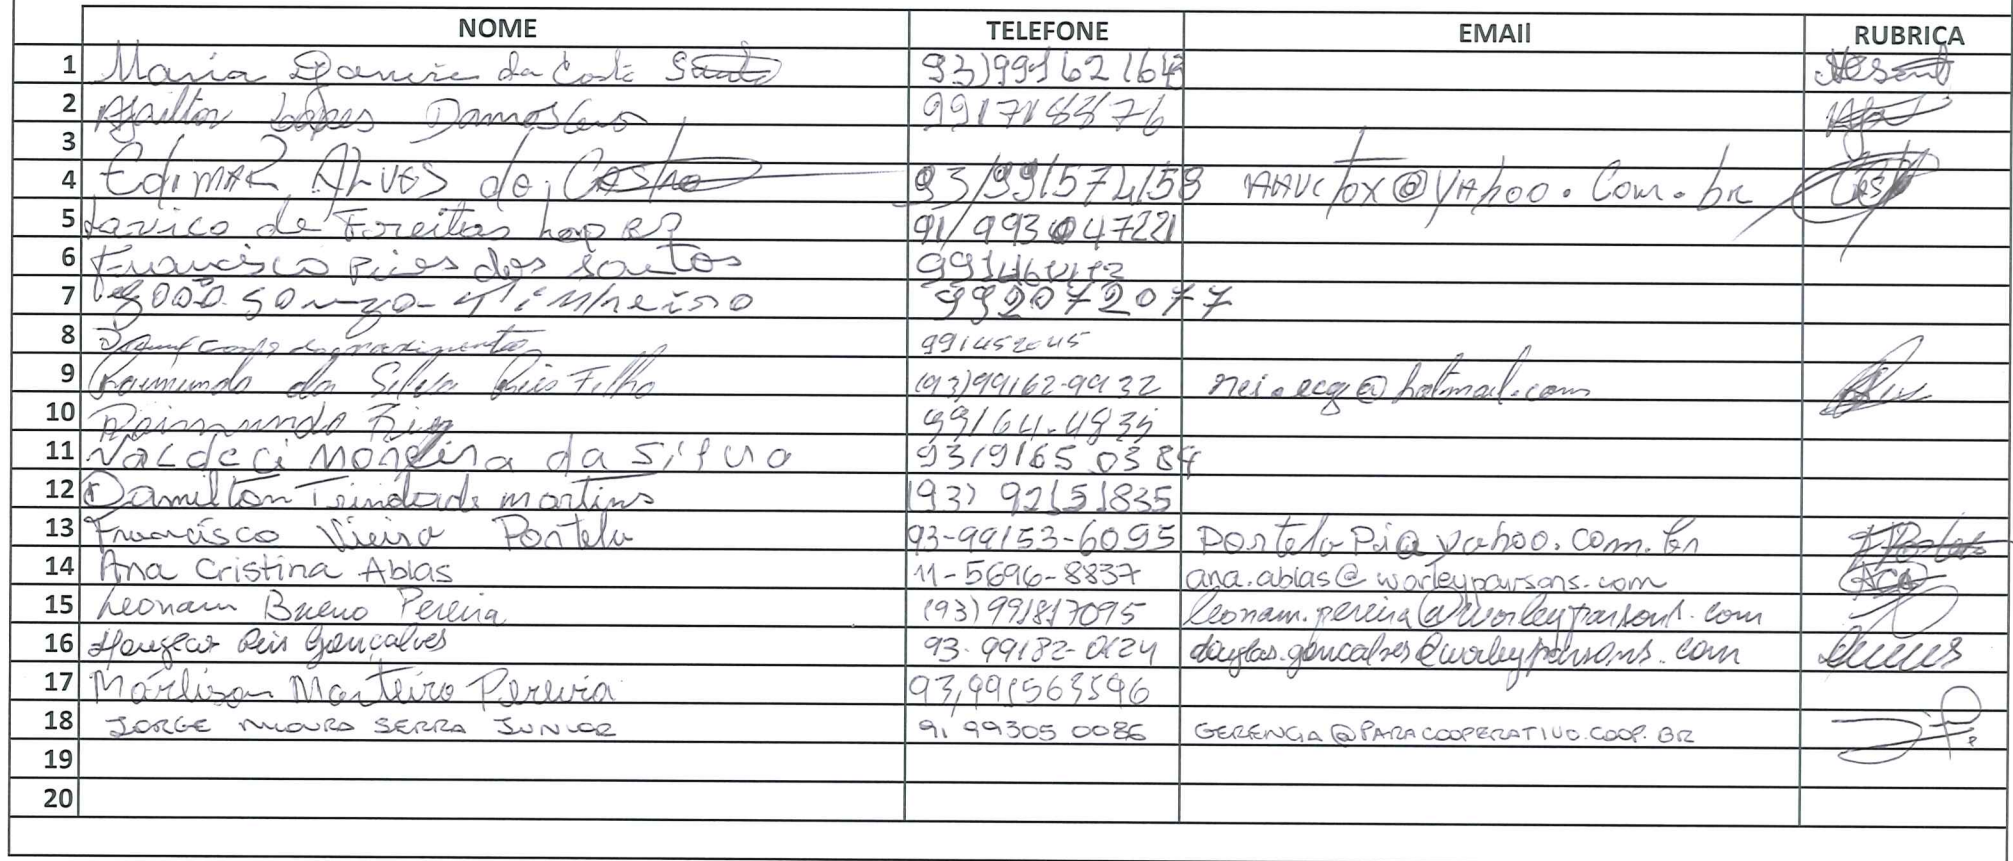 NOME TELEFONE EMAIl RUBRICA
1 Maria da Costa Santos 93)99162164
2 Lopes 9917188876
3
4 EdiMAR ALVES de Castro 93/991574158 AAVCTOX@YAhoo.Com.br
5 de Freitas 91/993047221
6 Francisco Pires dos Santos
7 992072077
8 991452045
9 Raimundo da Silva Reis Filho (93)99162-9932 nei.ecg@hotmail.com
10 Raimundo 99164-4835
11 Valdeci Moreira da Silva 93/9165 0384
12 Damilton Trindade martins (93) 92151835
13 Francisco Vieira Portela 93-99153-6095 portelapi@yahoo.com.br
14 Ana Cristina Ablas 11-5696-8837 ana.ablas@worleyparsons.com
15 Leonam Bueno Pereira (93)991817095 leonam.pereira@worleyparsons.com
16 Reis Gonçalves 93-99182-0124 douglas.goncalves@worleyparsons.com
17 Marlison Monteiro Pereira 93,991563596
18 JORGE MOURA SERRA JUNIOR 91 99305 0086 GERENCIA@PARACOOPERATIVO.COOP.BR
19
20